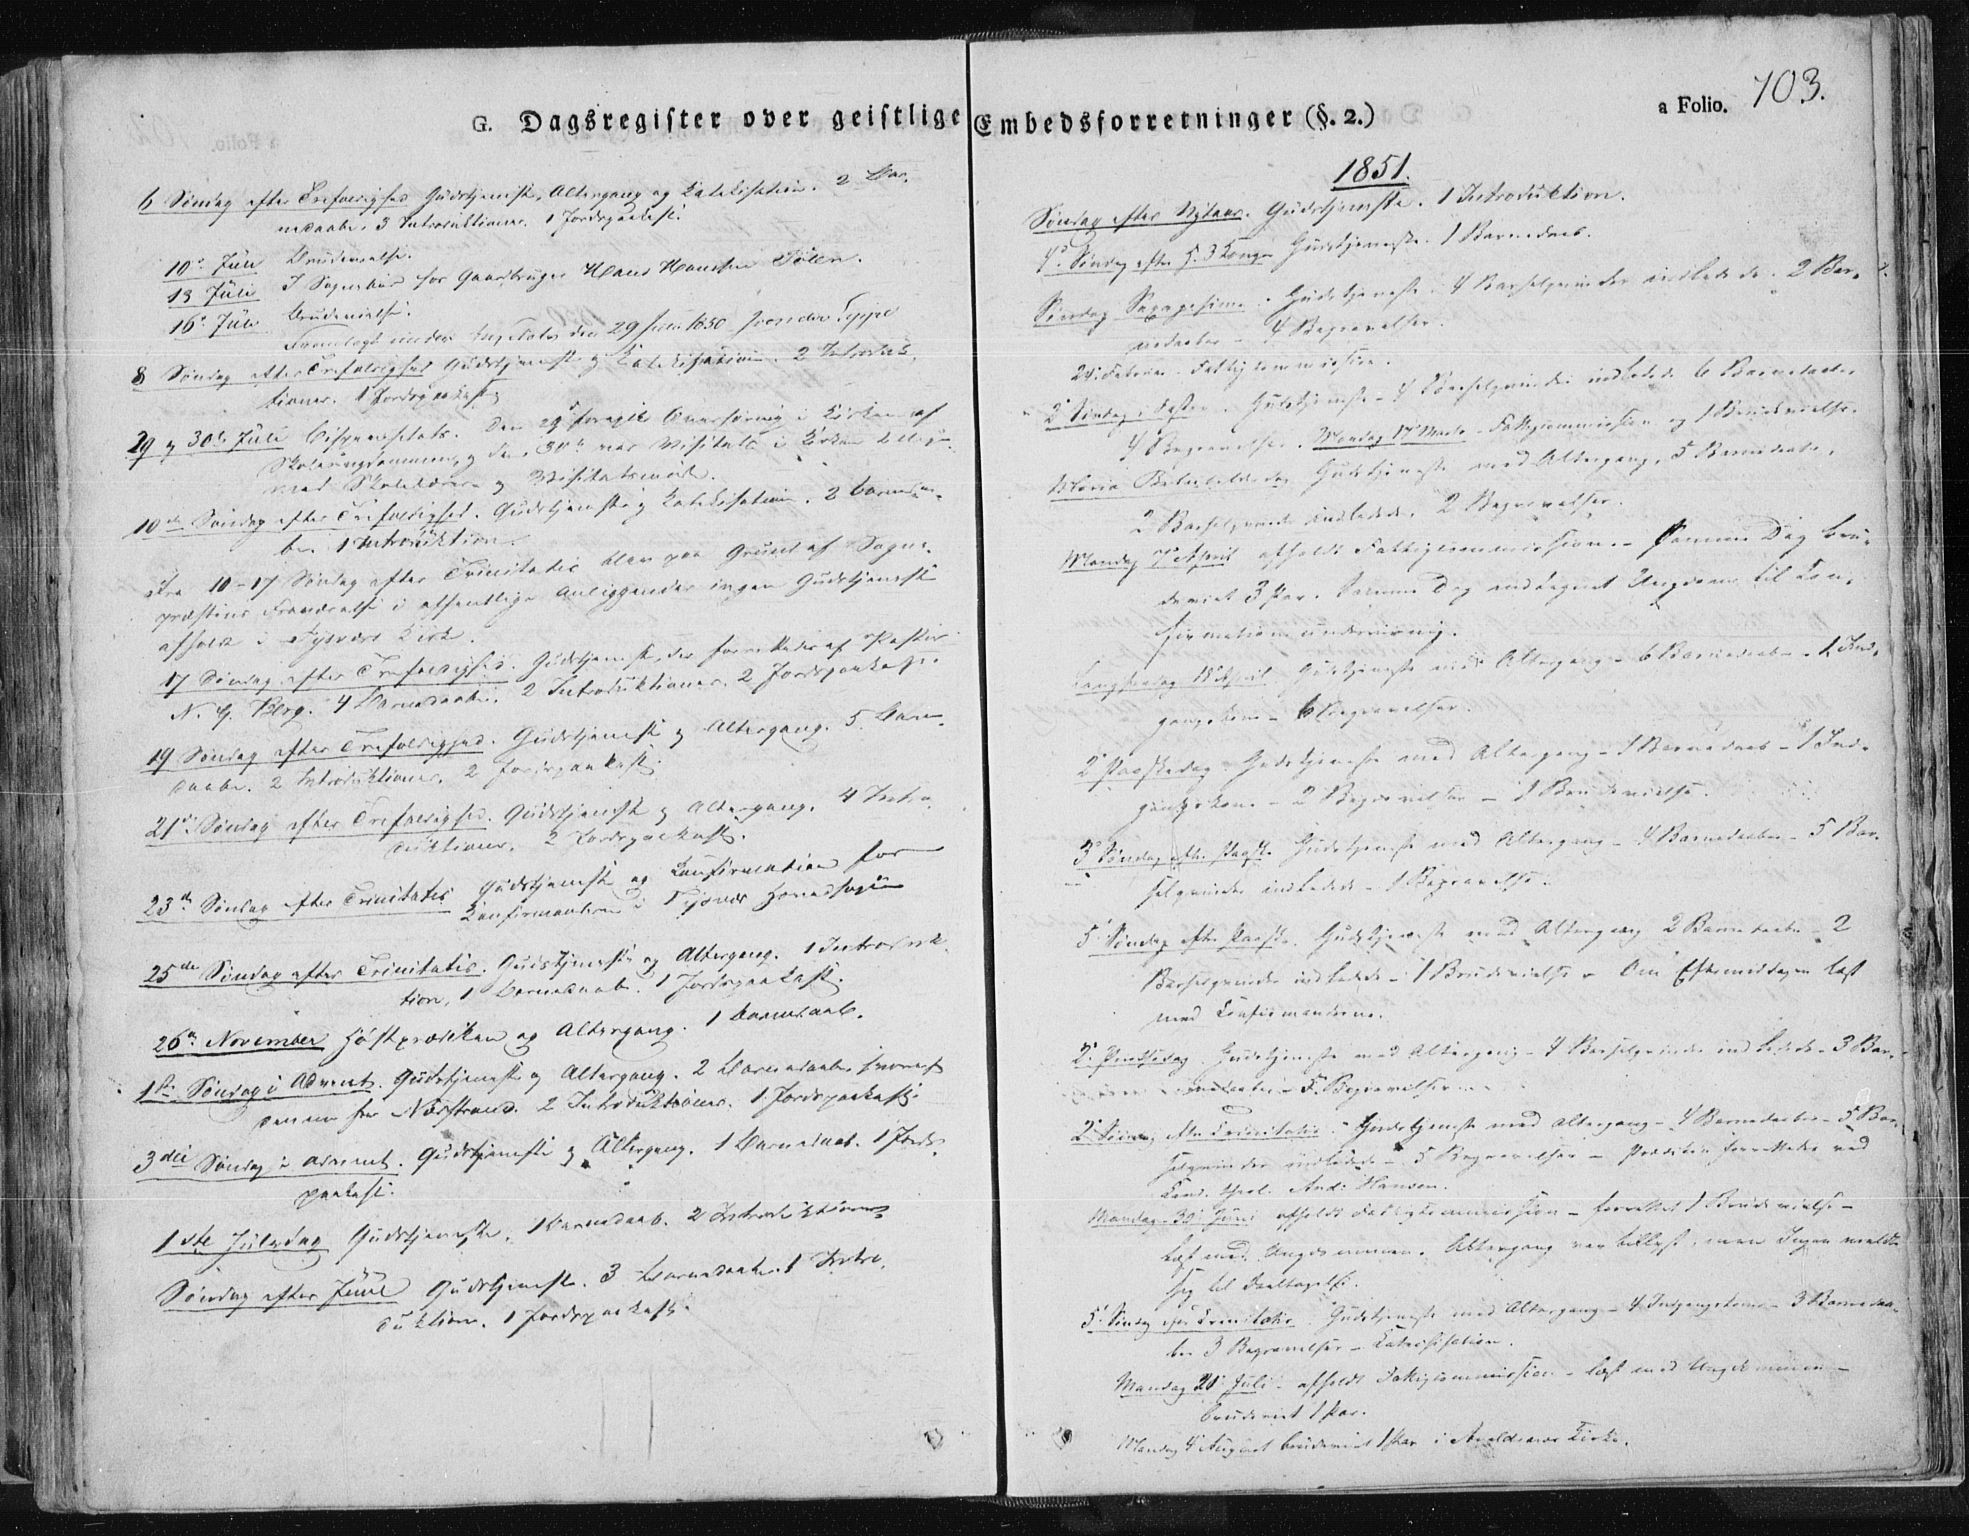 G. Dagsregister over geistlige Embedsforretninger (§. 2.)
a Folio. 103.
6 Søndag efter Trefoldighed Gudstjeneste, Altergang og Katekisation. 2 Bar-
nedaabe. 3 Introduktioner. 1 Jordspaakast.
10de Juli Brudevielse.
13 Juli I Sognebud for Gaardbruger Hans Hansen
16de Juli Brudevielse.
Fremlagt under den 29 Juli 1850
8 Søndag efter Trefoldighed Gudstjeneste og Katekisation. 2 Introduk-
tioner. 1 Jordspaakast
29 og 30te Juli Bispevisitats. Den 29de foregik i Kirken af
Skoleungdommen, og den 30te var Visitats i Kirken
med Skolelærere og Visitatsmøde.
10de Søndag efter Trefoldighed. Gudstjeneste og Katekisation. 2 Barnedaa-
be. 1 Introduktion.
Fra 10-17 Søndag efter Trinitatis blev paa Grund af Sogne-
præstens Fraværelse i offentlige Anliggender ingen Gudstjeneste
afholdt i Tysvær Kirke.
17 Søndag efter Trefoldighed. Gudstjeneste, der forrettedes af Pastor
N. G. Berg. 4 Barnedaabe. 2 Introduktioner. 2 Jordspaakast.
19 Søndag efter Trefoldighed. Gudstjeneste og Altergang. 5 Barne-
daabe. 2 Introduktioner. 2 Jordspaakast.
21de Søndag efter Trefoldighed. Gudstjeneste og Altergang. 4 Intro-
duktioner. 2 Jordspaakast.
23de Søndag efter Trinitatis Gudstjeneste og Konfirmation for
Konfirmanterne i Tysvær Hovedsogn
25de Søndag efter Trinitatis. Gudstjeneste og Altergang. 1 Introduk-
tion, 1 Barnedaab. 1 Jordspaakast.
26de November Høstprædiken og Altergang. 1 Barnedaab.
1ste Søndag i Advent. Gudstjeneste og Altergang. 2 Barnedaabe hvoraf
den ene fra Nærstrand. 2 Introduktioner. 1 Jordspaakast.
3die Søndag i Advent. Gudstjeneste og Altergang. 1 Barnedaab. 1 Jords-
paakast.
1ste Juledag Gudstjeneste. 1 Barnedaab. 2 Introduktioner
Søndag efter Juul Gudstjeneste. 3 Barnedaabe. 1 Intro-
duktion. 1 Jordspaakast.
1851.
Søndag efter Nytaar. Gudstjeneste. 1 Introduktion.
4de Søndag efter H. 3 Konger Gudstjeneste. 1 Barnedaab.
Søndag Sexagesima. Gudstjeneste. 4 Barselqvinder indledede. 2 Bar-
nedaabe - 4 Begravelser.
24de Februar. Fattigcommission.
2' Søndag i Faste. Gudstjeneste - 4 Barselqvinder indledede 6 Barnedaabe
4 Begravelser. Mandag 17de Marts - Fattigcommission og 1 Brudevielse.
Mariæ Bebudelsesdag Gudstjeneste med Altergang, 5 Barnedaabe.
2 Barselqvinder indledede. 2 Begravelser.
Mandag 7de April afholdt Fattigcommission. Samme Dag bru-
deviet 3 Par. Samme Dag Ungdom til Con-
firmationsundervisning.
Langfredag 18de April. Gudstjeneste med Altergang - 6 Barnedaabe - 1 Ind-
gangskone - 6 Begravelser.
2' Paaskedag. Gudstjeneste med Altergang - 1 Barnedaab - 1 Ind-
gangskone - 2 Begravelser - 1 Brudevielse.
3' Søndag efter Paaske. Gudstjeneste med Altergang - 4 Barnedaabe - 5 Bar-
selqvinder indledede - 1 Begravelse.
5' Søndag efter Paaske. Gudstjeneste med Altergang 2 Barnedaabe - 2
Barselqvinder indledede - 1 Brudevielse - Om Eftermiddagen læst
med Konfirmanderne.
2' Pintsedag. Gudstjeneste med Altergang - 4 Barselqvinder indledede - 3 Bar-
nedaabe - 5 Begravelser.
2' Søndag efter Trinitatis. Gudstjeneste med Altergang - 4 Barnedaabe - 5 Bar-
selqvinder indledede - 5 Begravelser - Præsten forrettedes ved
Cand. theol. And: Hansen.
Mandag 30' Juni afholdt Fattigcommission - forrettet 1 Brudevielse -
læst med Ungdommen. Altergang var tillyst, men Ingen meldte
sig til Deeltagelse.
5' Søndag efter Trinitatis. Gudstjeneste med Altergang - 4 Indgangskoner - 3 Barnedaa-
be 3 Begravelser - Katechisation.
Mandag 21' Juli. afholdt Fattigcommission - læst med Ungdommen -
brudeviet 1 Par.
Mandag 4' August brudeviet 1 Par i Avaldsnæs Kirke.